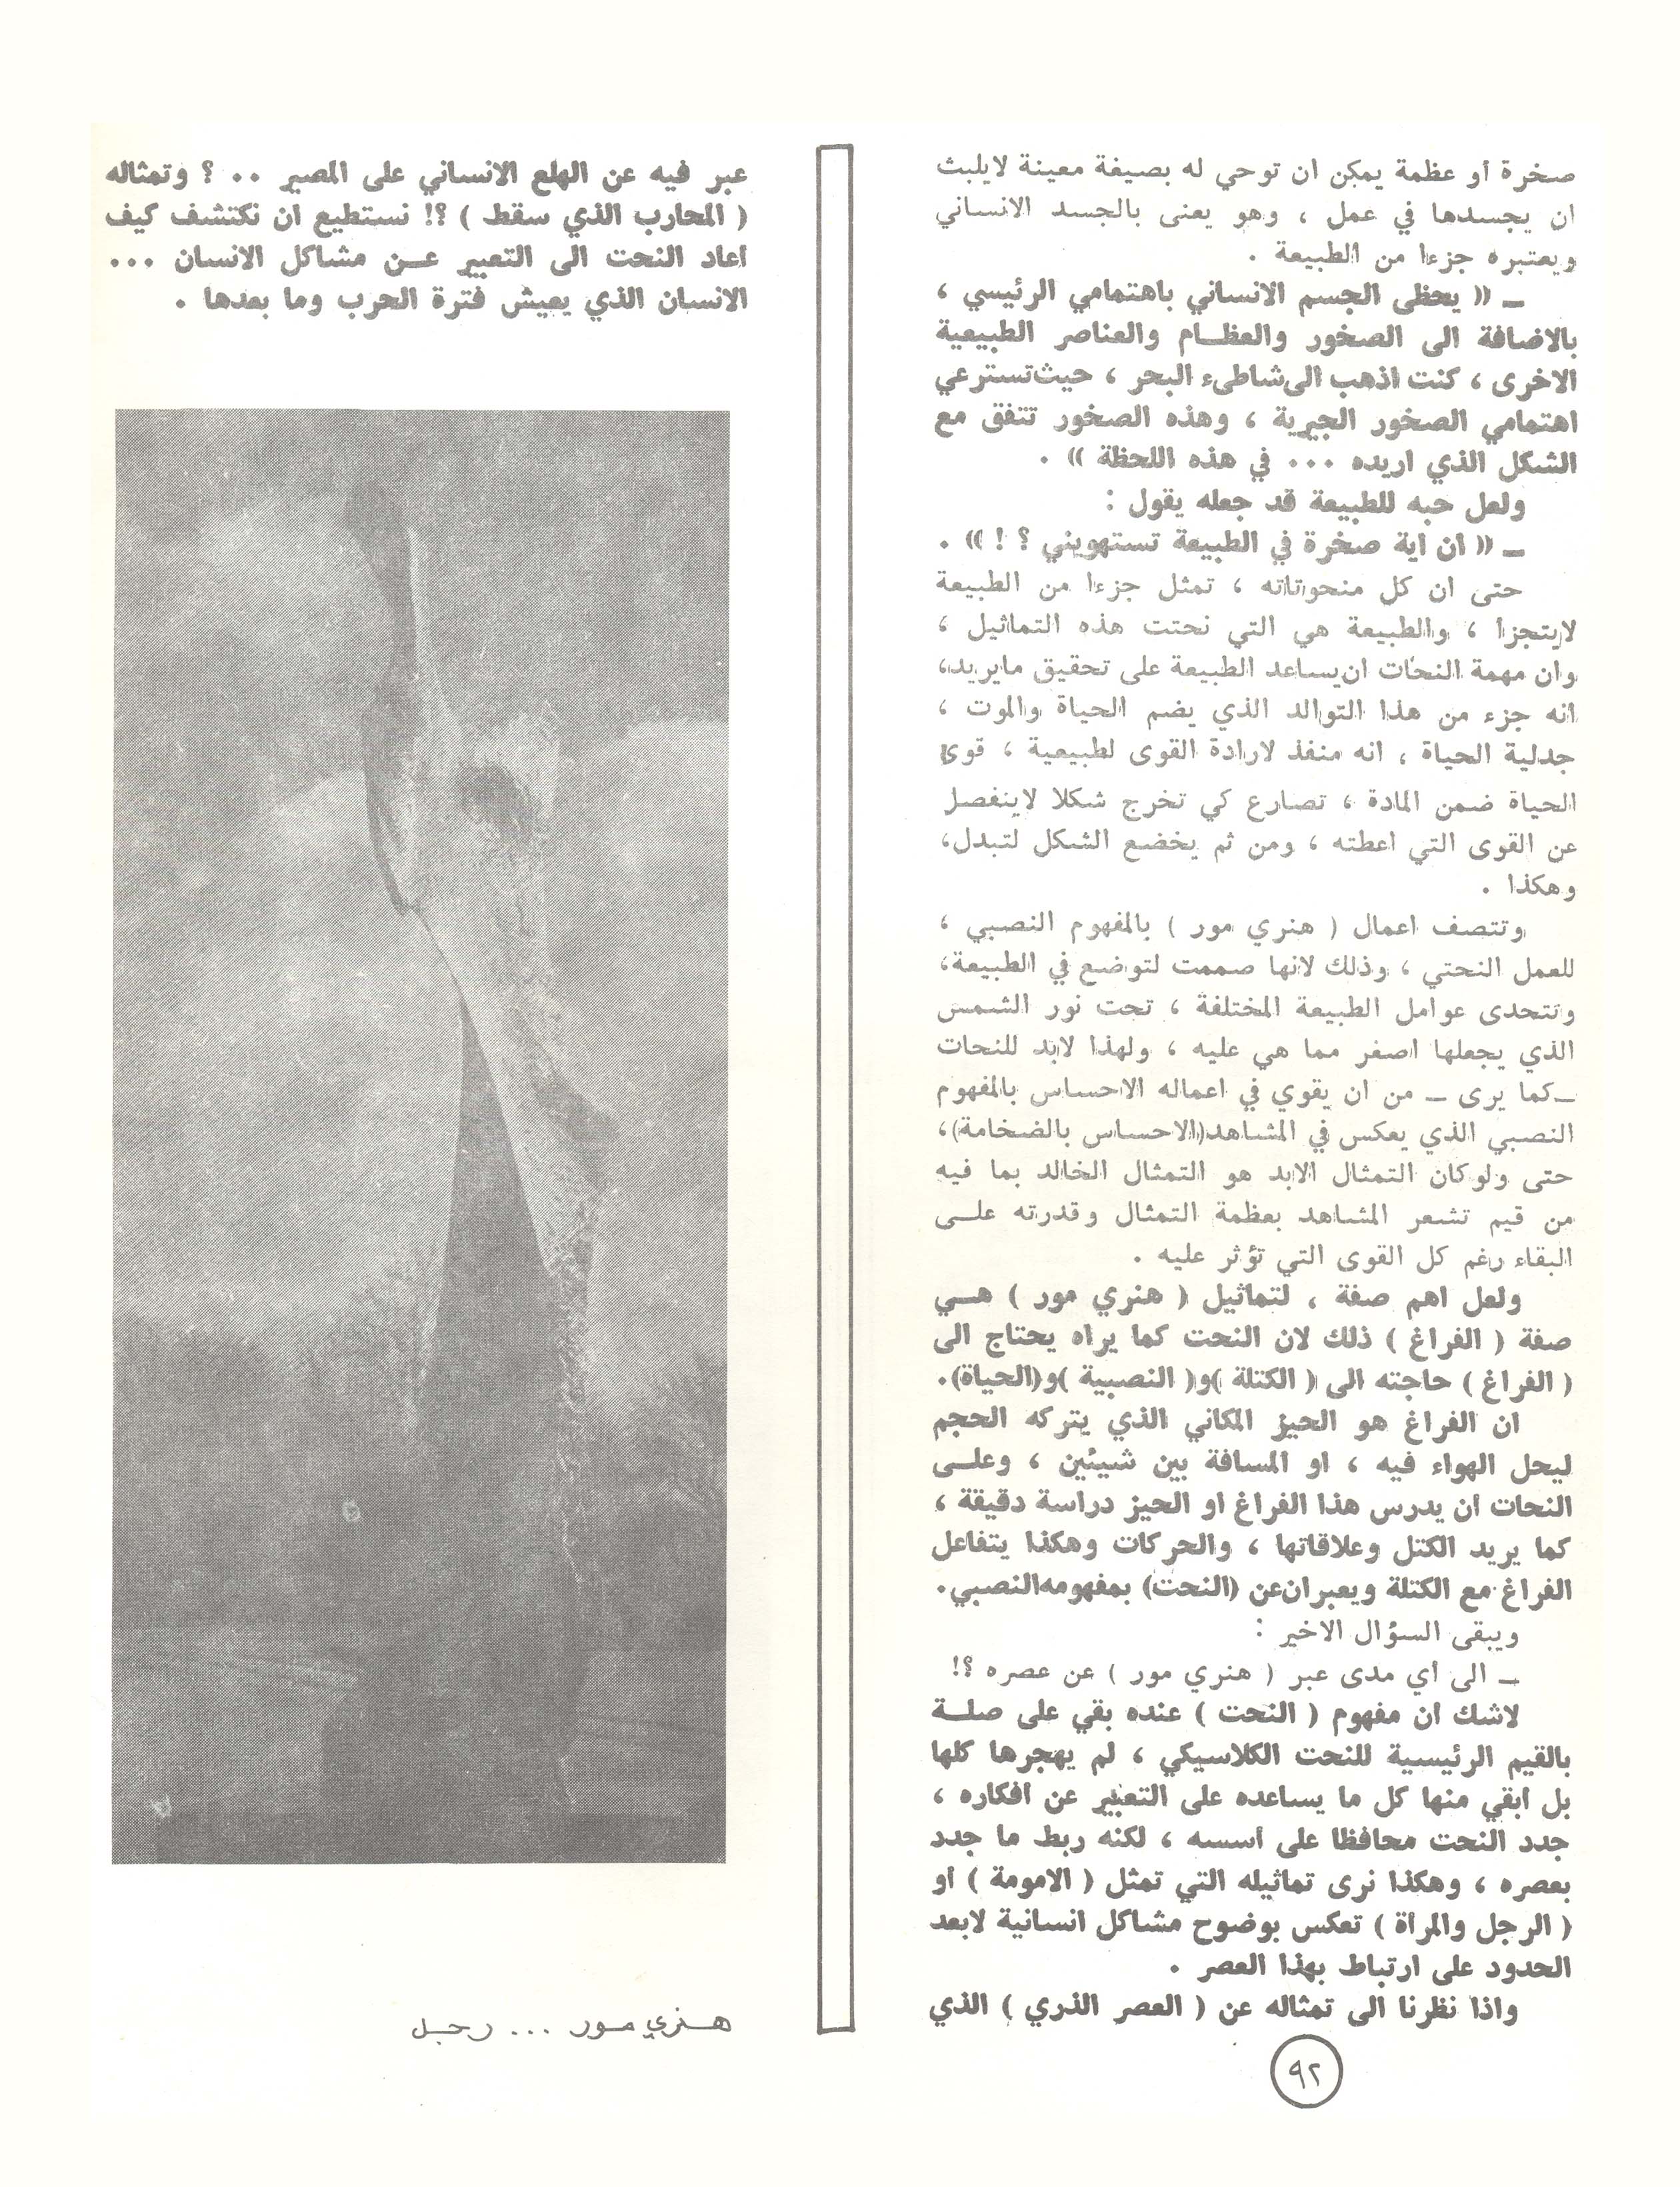 صخرة أو عظمة يمكن ان توحي له بصيغة معينة لايلبث
ان يجسدها في عمل ، وهو يعنى بالجسد الانساني
ويعتبره جزءا من الطبيعة .
ــ (( يحظى الجسم الانساني باهتمامي الرئيسي ،
بالاضافة الى الصخور والعظـــام والعناصر الطبيعية
الاخرى ، كنت اذهب الى شاطىء البحر ، حيث تسترعي
اهتمامي الصخور الجيرية ، وهذه الصخور تتفق مع
الشكل الذي اريده ... في هذه اللحظة )) .
ولعل حبه للطبيعة قد جعله يقول :
ــ (( ان اية صخرة في الطبيعة تستهويني ؟ ! )) .
حتى ان كل منحوتاته ، تمثل جزءا من الطبيعة
لايتجزأ ، والطبيعة هي التي نحتت هذه التماثيل ،
وان مهمة النحات ان يساعد الطبيعة على تحقيق مايريد،
انه جزء من هذا التوالد الذي يضم الحياة والموت ،
جدلية الحياة ، انه منفذ لارادة القوى لطبيعية ، قوى
الحياة ضمن المادة ، تصارع كي تخرج شكلا لاينفصل
عن القوى التي اعطته ، ومن ثم يخضع الشكل لتبدل،
وهكذا .
وتتصف اعمال ( هنري مور ) بالمفهوم النصبي ،
للعمل النحتي ، وذلك لانها صممت لتوضع في الطبيعة،
وتتحدى عوامل الطبيعة المختلفة ، تحت نور الشمس
الذي يجعلها اصغر مما هي عليه ، ولهذا لابد للنحات
ــ كما يرى ــ من ان يقوي في اعماله الاحساس بالمفهوم
النصبي الذي يعكس في المشاهد (الاحساس بالضخامة)،
حتى ولو كان التمثال الابد هو التمثال الخالد بما فيه
من قيم تشعر المشاهد بعظمة التمثال وقدرته علـــى
البقاء رغم كل القوى التي تؤثر عليه .
ولعل اهم صفة ، لتماثيل ( هنري مور ) هـــي
صفة ( الفراغ ) ذلك لان النحت كما يراه يحتاج الى
( الفراغ ) حاجته الى ( الكتلة )و( النصبية )و(الحياة).
ان الفراغ هو الحيز المكاني الذي يتركه الحجم
ليحل الهواء فيه ، او المسافة بين شيئين ، وعلـــى
النحات ان يدرس هذا الفراغ او الحيز دراسة دقيقة ،
كما يريد الكتل وعلاقاتها ، والحركات وهكذا يتفاعل
الفراغ مع الكتلة ويعبران عن (النحت) بمفهومه النصبي.
ويبقى السؤال الاخير :
ــ الى أي مدى عبر ( هنري مور ) عن عصره ؟!
لاشك ان مفهوم ( النحت ) عنده بقي على صلـــة
بالقيم الرئيسية للنحت الكلاسيكي ، لم يهجرها كلها
بل ابقي منها كل ما يساعده على التعبير عن افكاره ،
جدد النحت محافظا على أسسه ، لكنه ربط ما جدد
بعصره ، وهكذا نرى تماثيله التي تمثل ( الامومة ) أو
( الرجل والمرأة ) تعكس بوضوح مشاكل انسانية لابعد
الحدود على ارتباط بهذا العصر .
واذا نظرنا الى تمثاله عن ( العصر الذري ) الذي
عبر فيه عن الهلع الانساني على المصير .. ؟ وتمثاله
( المحارب الذي سقط ) ؟! نستطيع ان نكتشف كيف
اعاد النحت الى التعبير عـــن مشاكل الانسان ...
الانسان الذي يعيش فترة الحرب وما بعدها .
هنري مور ... رجل
٩٢